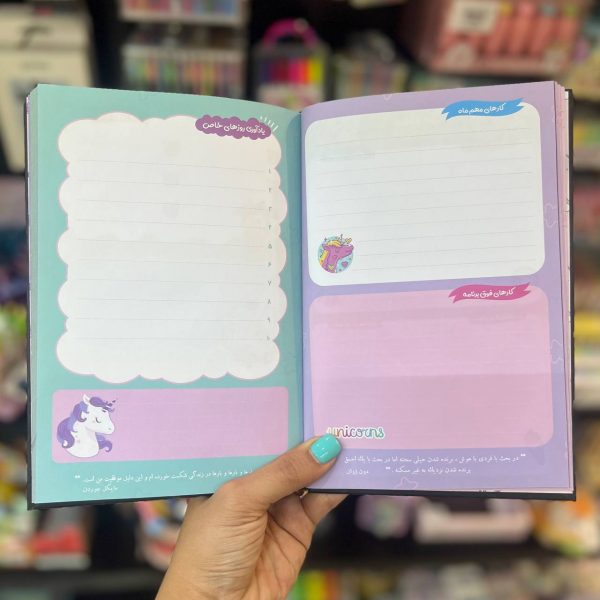 کارهای مهم ماه
کارهای فوق برنامه
unicorns
" در بحث با فردی با هوش ، برنده شدن خیلی سخته اما در بحث با یك احمق
برنده شدن نزدیك به غیر ممکنه "
یادآوری روزهای خاص
۱
۲
۳
۴
۵
۶
۷
۸
۹
۱۰
و بارها و بارها در زندگی شکست خورده ام و این دلیل موفقیت من است. "
مایکل جوردن